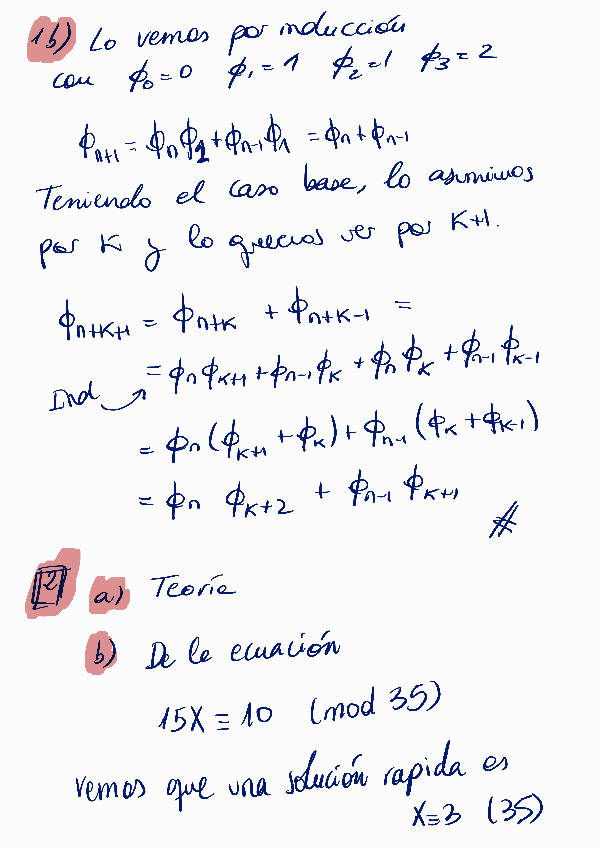 1b) Lo vemos por inducción
con ϕ₀=0 ϕ₁=1 ϕ₂=1 ϕ₃=2
ϕₙ₊₁ = ϕₙϕ₂+ϕₙ₋₁ϕ₁ = ϕₙ+ϕₙ₋₁
Teniendo el caso base, lo asumimos
por K y lo queremos ver por K+1.
ϕₙ₊ₖ₊₁ = ϕₙ₊ₖ + ϕₙ₊ₖ₋₁ =
Ind = ϕₙϕₖ₊₁+ϕₙ₋₁ϕₖ+ϕₙϕₖ+ϕₙ₋₁ϕₖ₋₁
= ϕₙ(ϕₖ₊₁+ϕₖ)+ϕₙ₋₁(ϕₖ+ϕₖ₋₁)
= ϕₙ ϕₖ₊₂ + ϕₙ₋₁ ϕₖ₊₁
#
2 a) Teoría
b) De la ecuación
15X ≡ 10 (mod 35)
vemos que una solución rapida es
X≡3 (35)